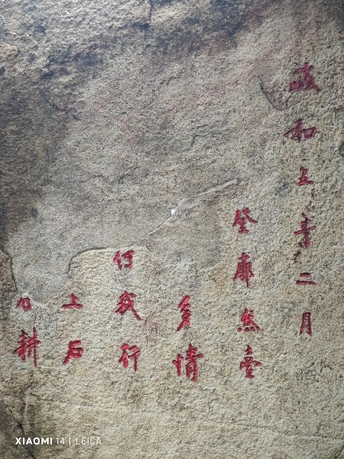 政和五年二月
登廓然臺
多情
何我行
上石
石耕
XIAOMI 14 | LEICA